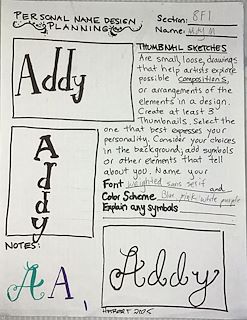 PERSONAL NAME DESIGN
PLANNING
Section: 8F1
Name:
Addy
THUMBNAIL SKETCHES
Are small, loose, drawings
that help artists explore
possible compositions
or arrangements of the
elements in a design.
Create at least 3
Thumbnails. Select the
one that best expresses your
personality. Consider your choices
in the background, add symbols
or other elements that tell
about you. Name your
Font weighted sans serif and
Color Scheme Blue pink white purple
Explain any symbols
Addy
NOTES:
A A
Addy
HIBBERT 2015